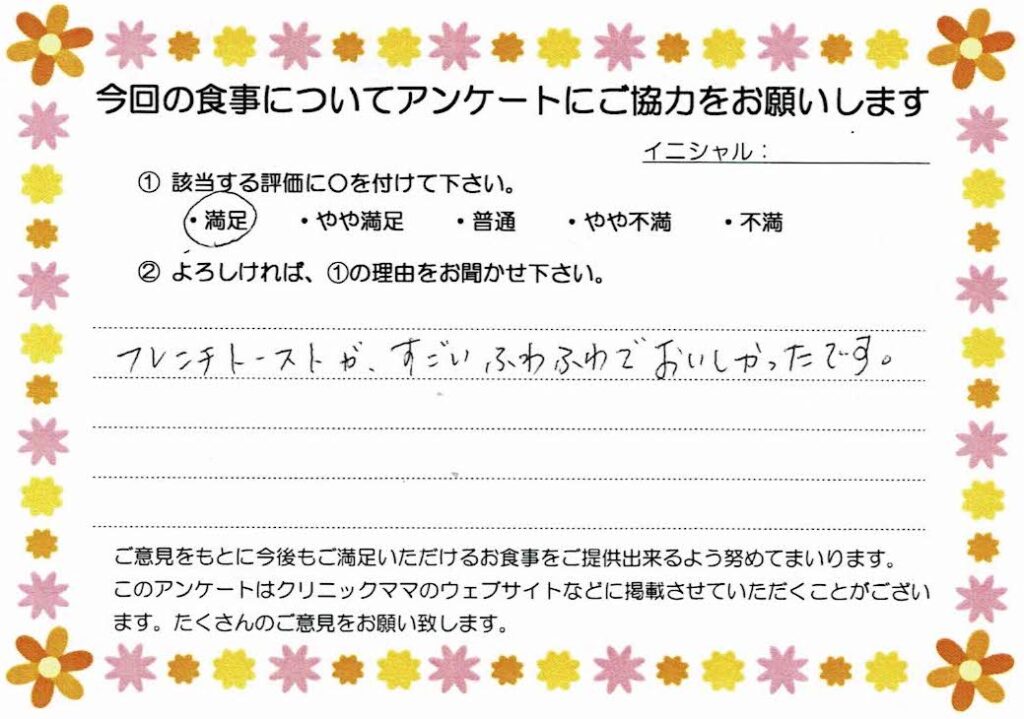 今回の食事についてアンケートにご協力をお願いします
イニシャル：
① 該当する評価に〇を付けて下さい。
・満足 ・やや満足 ・普通 ・やや不満 ・不満
② よろしければ、①の理由をお聞かせ下さい。
フレンチトーストが、すごいふわふわでおいしかったです。
ご意見をもとに今後もご満足いただけるお食事をご提供出来るよう努めてまいります。
このアンケートはクリニックママのウェブサイトなどに掲載させていただくことがござい
ます。たくさんのご意見をお願い致します。